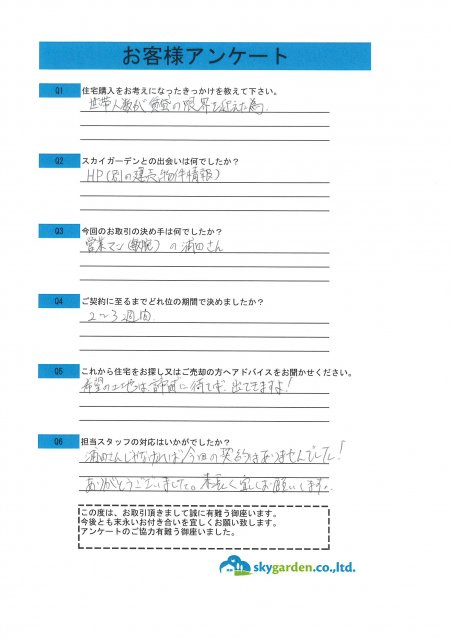 お客様アンケート
Q1 住宅購入をお考えになったきっかけを教えて下さい。
世帯人数が賃貸の限界を迎えた為
Q2 スカイガーデンとの出会いは何でしたか？
HP(別の建売物件情報)
Q3 今回のお取引の決め手は何でしたか？
営業マン(敏腕)の浦田さん
Q4 ご契約に至るまでどれ位の期間で決めましたか？
2〜3週間
Q5 これから住宅をお探し又はご売却の方へアドバイスをお聞かせください。
希望の土地は、待てば、出てきますよ！
Q6 担当スタッフの対応はいかがでしたか？
浦田さんじゃなければ今回の契約はありませんでした！
ありがとうございました。末長く宜しくお願いします。
この度は、お取引頂きまして誠に有難う御座います。
今後とも末永いお付き合いを宜しくお願い致します。
アンケートのご協力有難う御座いました。
skygarden.co.,ltd.